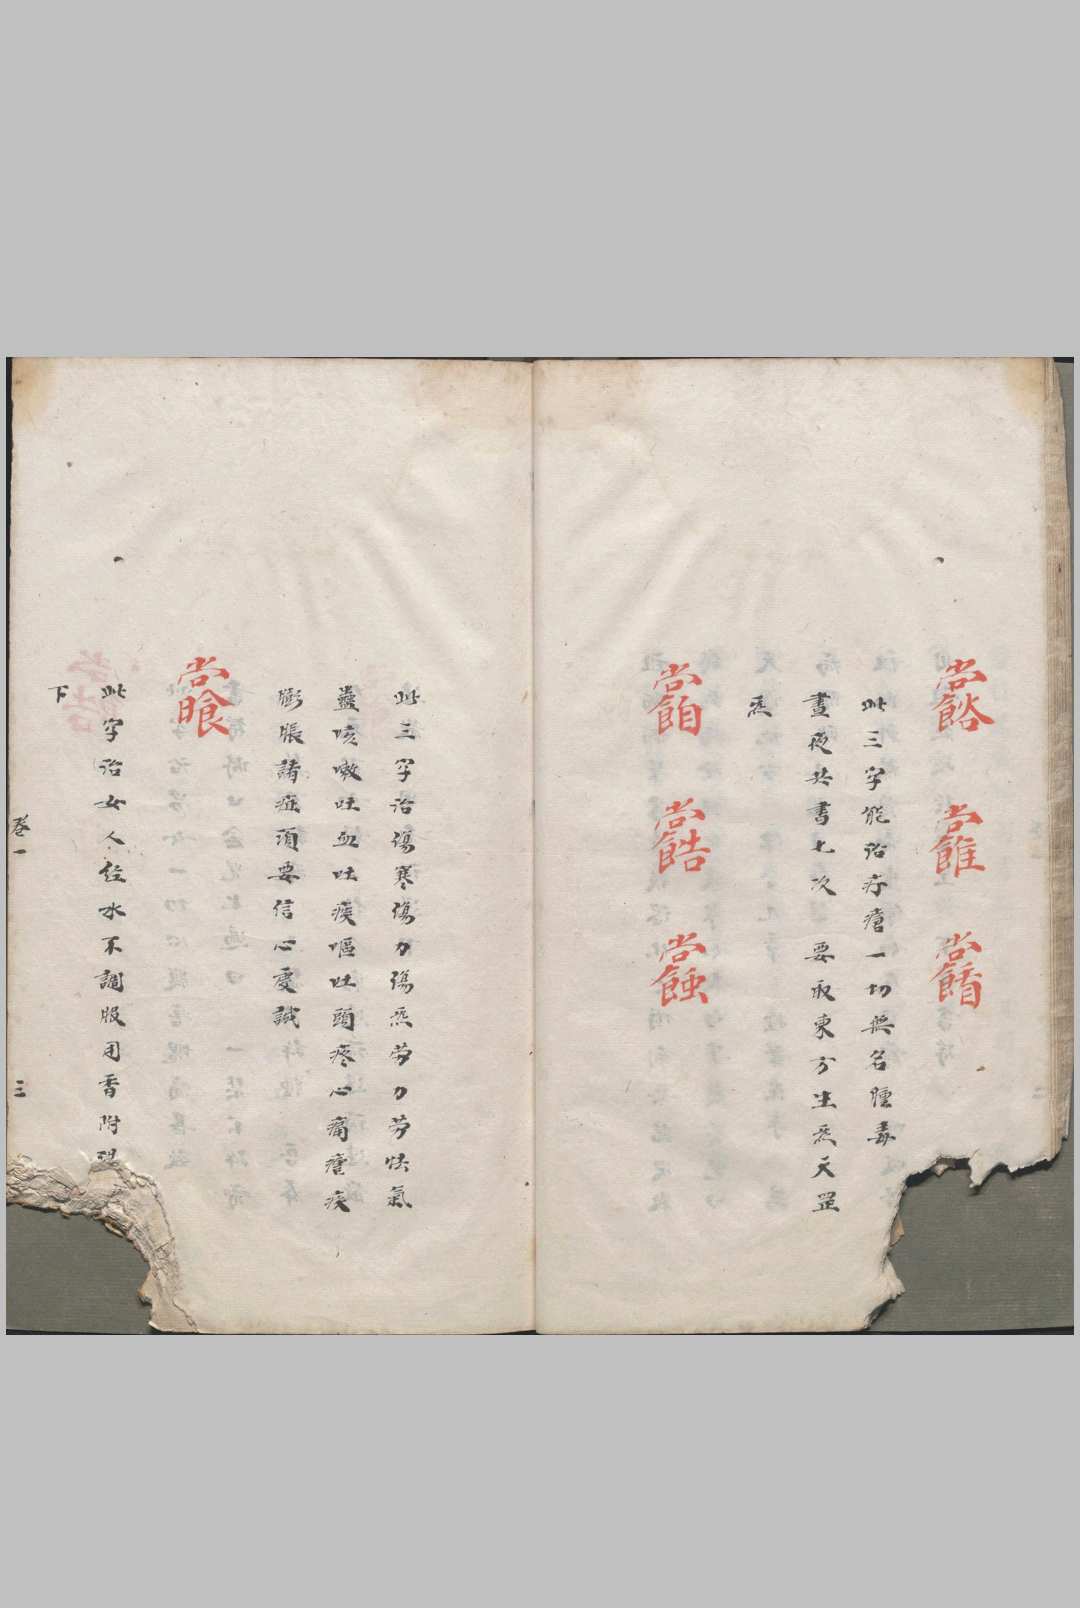 此三字能治疔瘡一切無名腫毒
晝夜共書七次　要取東方生炁天罡
炁
此三字治傷寒傷力傷炁勞力勞怯氣
蠱咳嗽吐血吐痰嘔吐頭疼心痛瘧疾
膨脹諸症須要信心虔誠
此字治女人經水不調服用香附
下
卷一
三